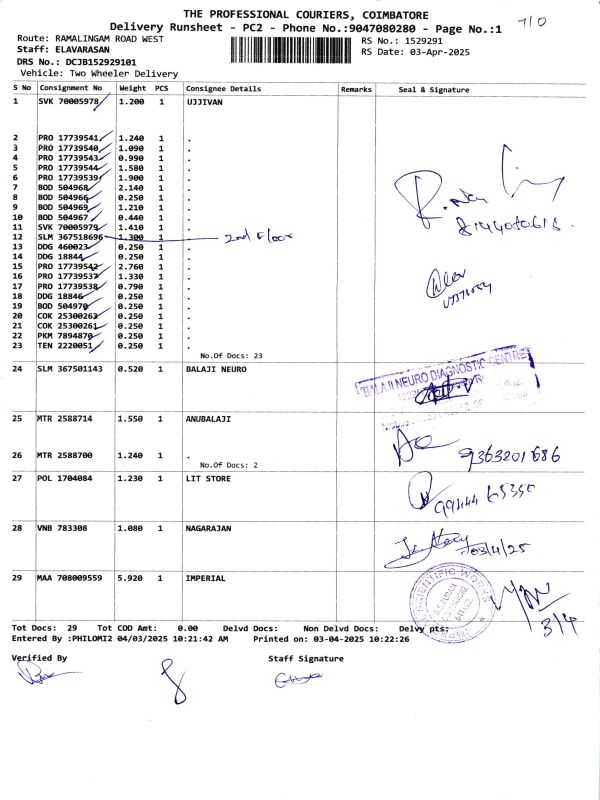 THE PROFESSIONAL COURIERS, COIMBATORE
Delivery Runsheet - PC2 - Phone No.:9047080280 - Page No.:1
Route: RAMALINGAM ROAD WEST
RS No.: 1529291
Staff: ELAVARASAN
RS Date: 03-Apr-2025
DRS No.: DCJB152929101
Vehicle: Two Wheeler Delivery
S No Consignment No Weight PCS Consignee Details Remarks Seal & Signature
1 SVK 70005978 1.200 1 UJJIVAN
2 PRO 17739541 1.240 1 .
3 PRO 17739540 1.090 1 .
4 PRO 17739543 0.990 1 .
5 PRO 17739544 1.580 1 .
6 PRO 17739539 1.900 1 .
7 BOD 504968 2.140 1 .
8 BOD 504966 0.250 1 .
9 BOD 504969 1.210 1 .
10 BOD 504967 0.440 1 .
11 SVK 70005979 1.410 1 .
12 SLM 367518696 1.300 1 2nd Floor
13 DDG 460023 0.250 1 .
14 DDG 18844 0.250 1 .
15 PRO 17739542 2.760 1 .
16 PRO 17739537 1.330 1 .
17 PRO 17739538 0.790 1 .
18 DDG 18846 0.250 1 .
19 BOD 504970 0.250 1 .
20 COK 25300263 0.250 1 .
21 COK 25300261 0.250 1 .
22 PKM 7894870 0.250 1 .
23 TEN 2220051 0.250 1 .
No.Of Docs: 23
24 SLM 367501143 0.520 1 BALAJI NEURO
BALAJI NEURO DIAGNOSTIC CENTRE
25 MTR 2588714 1.550 1 ANUBALAJI
26 MTR 2588700 1.240 1 .
9363201686
No.Of Docs: 2
27 POL 1704084 1.230 1 LIT STORE
99444 65350
28 VNB 783308 1.080 1 NAGARAJAN
03/4/25
29 MAA 708009559 5.920 1 IMPERIAL
SCIENTIFIC WORKS
3/4
Tot Docs: 29 Tot COD Amt: 0.00 Delvd Docs: Non Delvd Docs: Delvy pts:
Entered By :PHILOMI2 04/03/2025 10:21:42 AM Printed on: 03-04-2025 10:22:26
Verified By Staff Signature